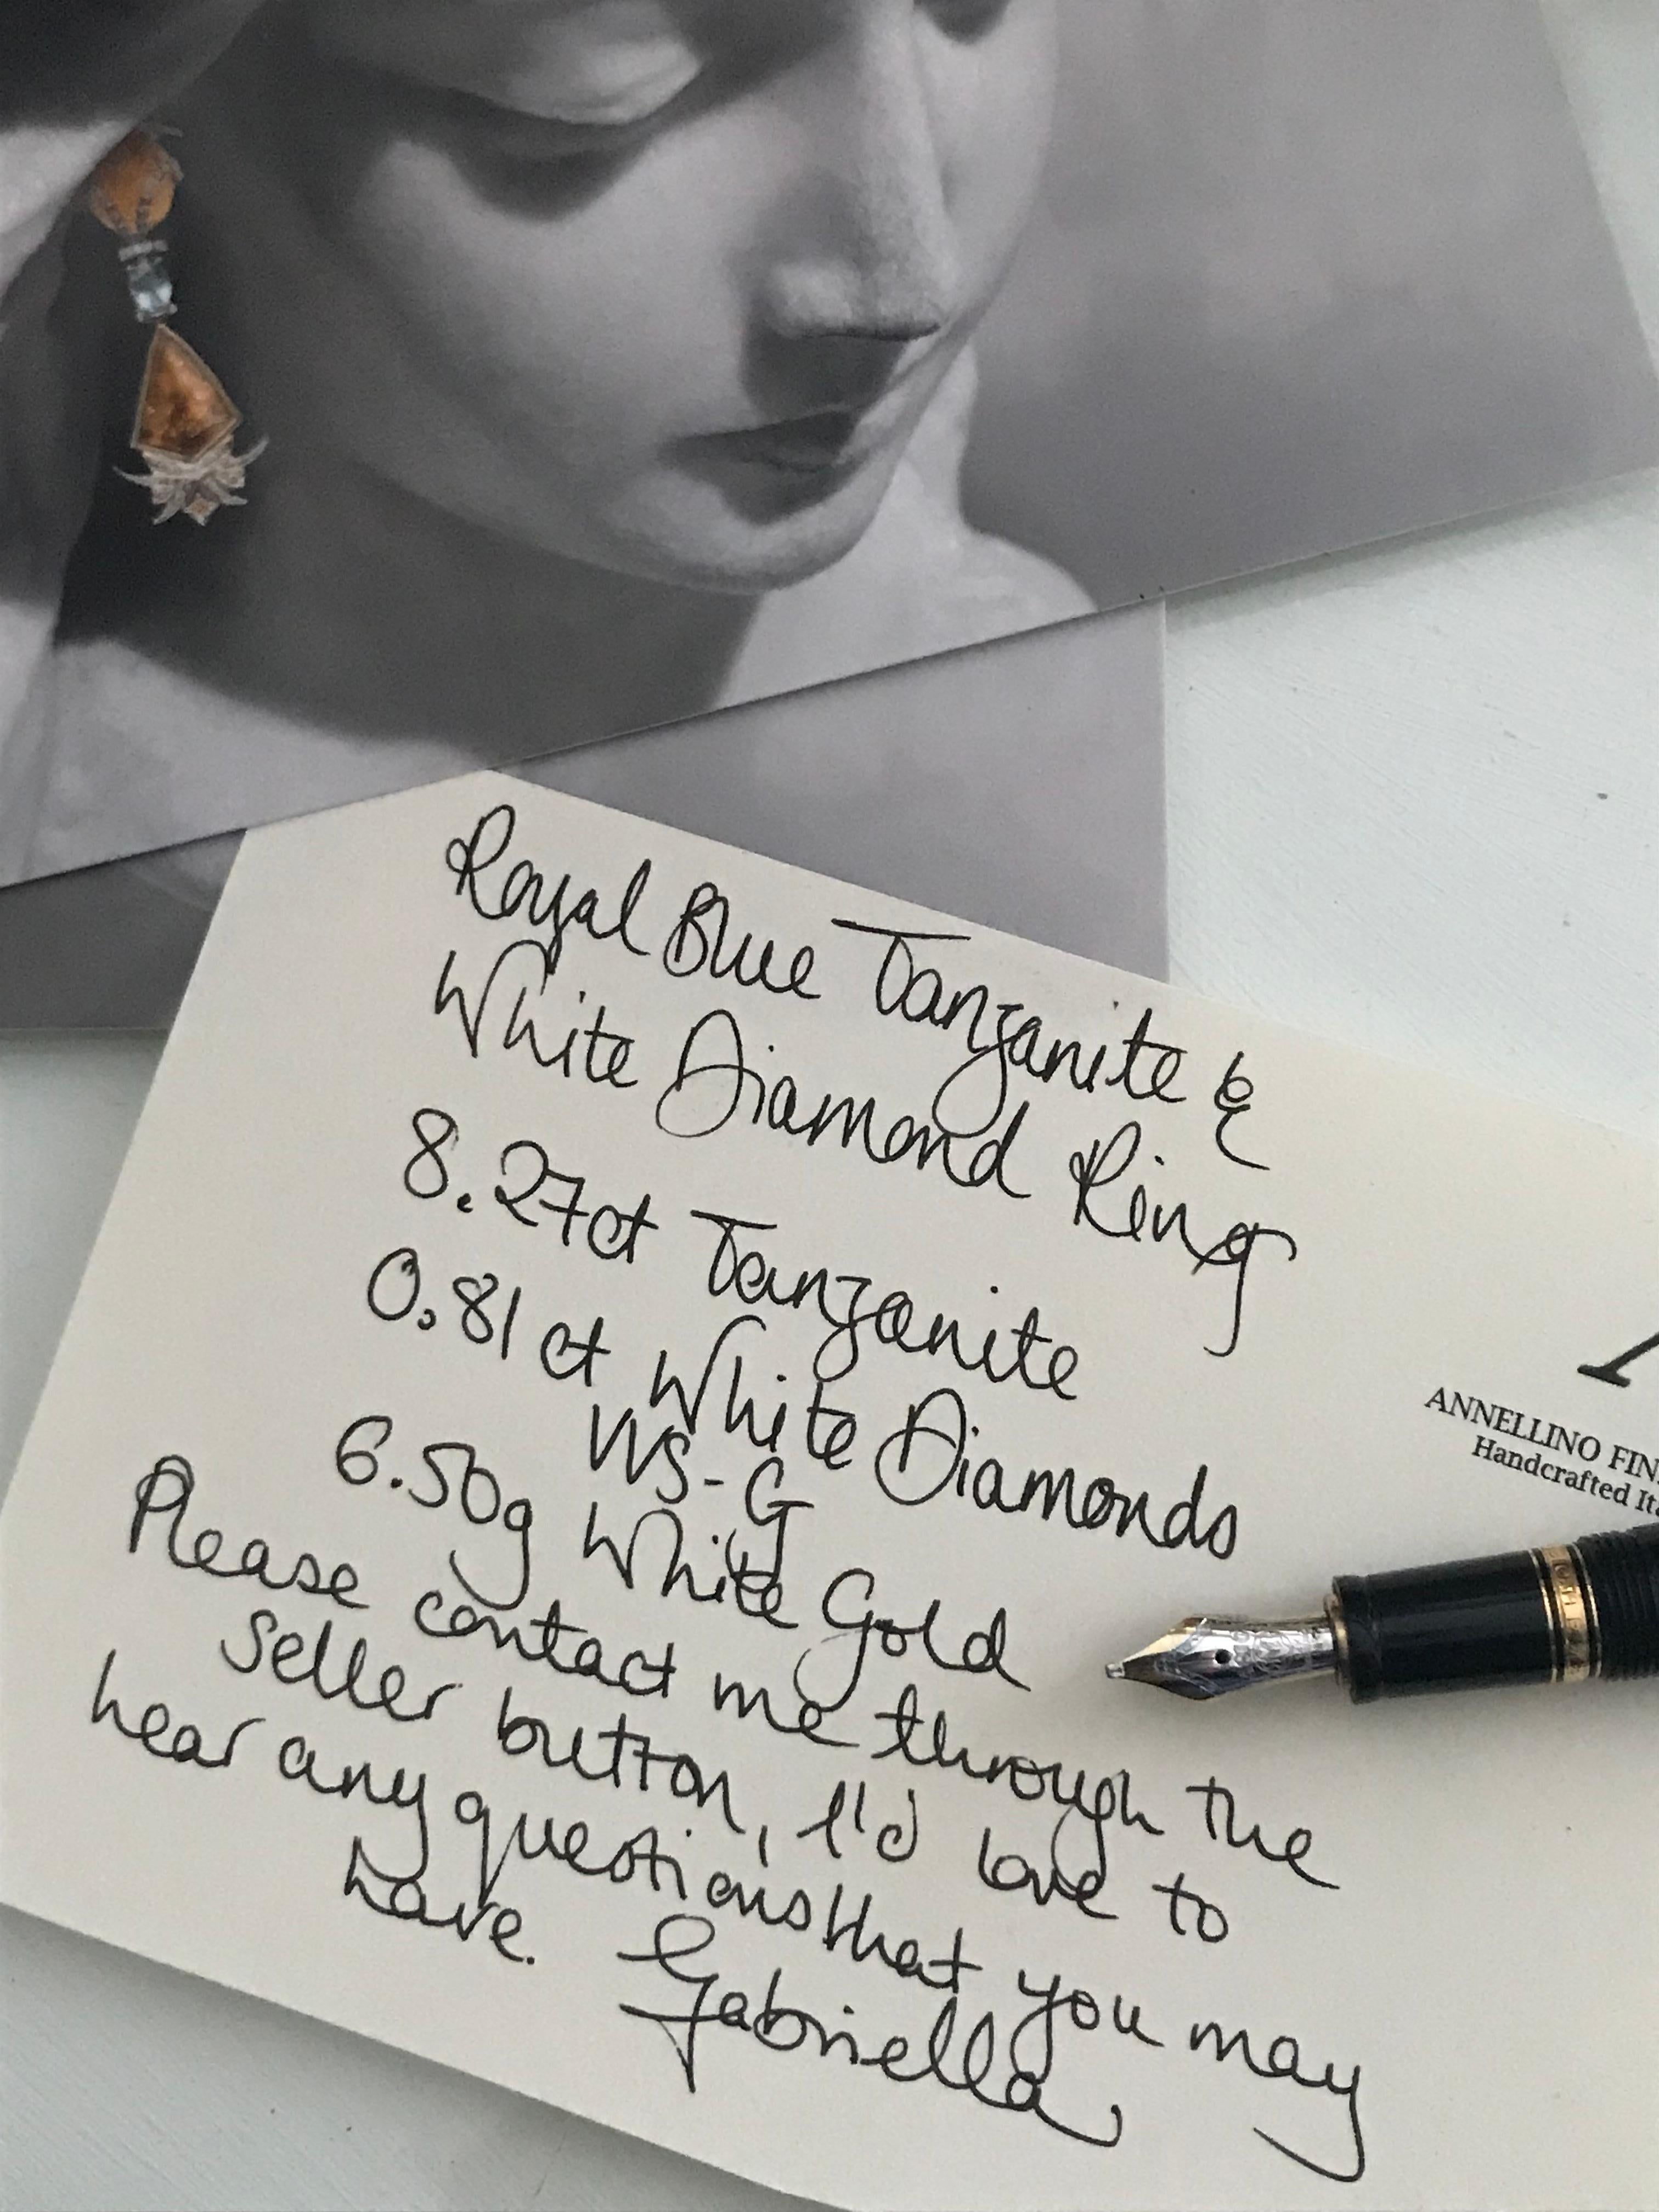 Royal Blue Tanzanite &
White Diamond Ring
8.27ct Tanzanite
0.81ct White Diamonds
VVS-G
6.50g White Gold
Please contact me through the
seller button, I'd love to
hear any questions that you may
have. Gabriella
ANNELLINO FIN
Handcrafted Ita